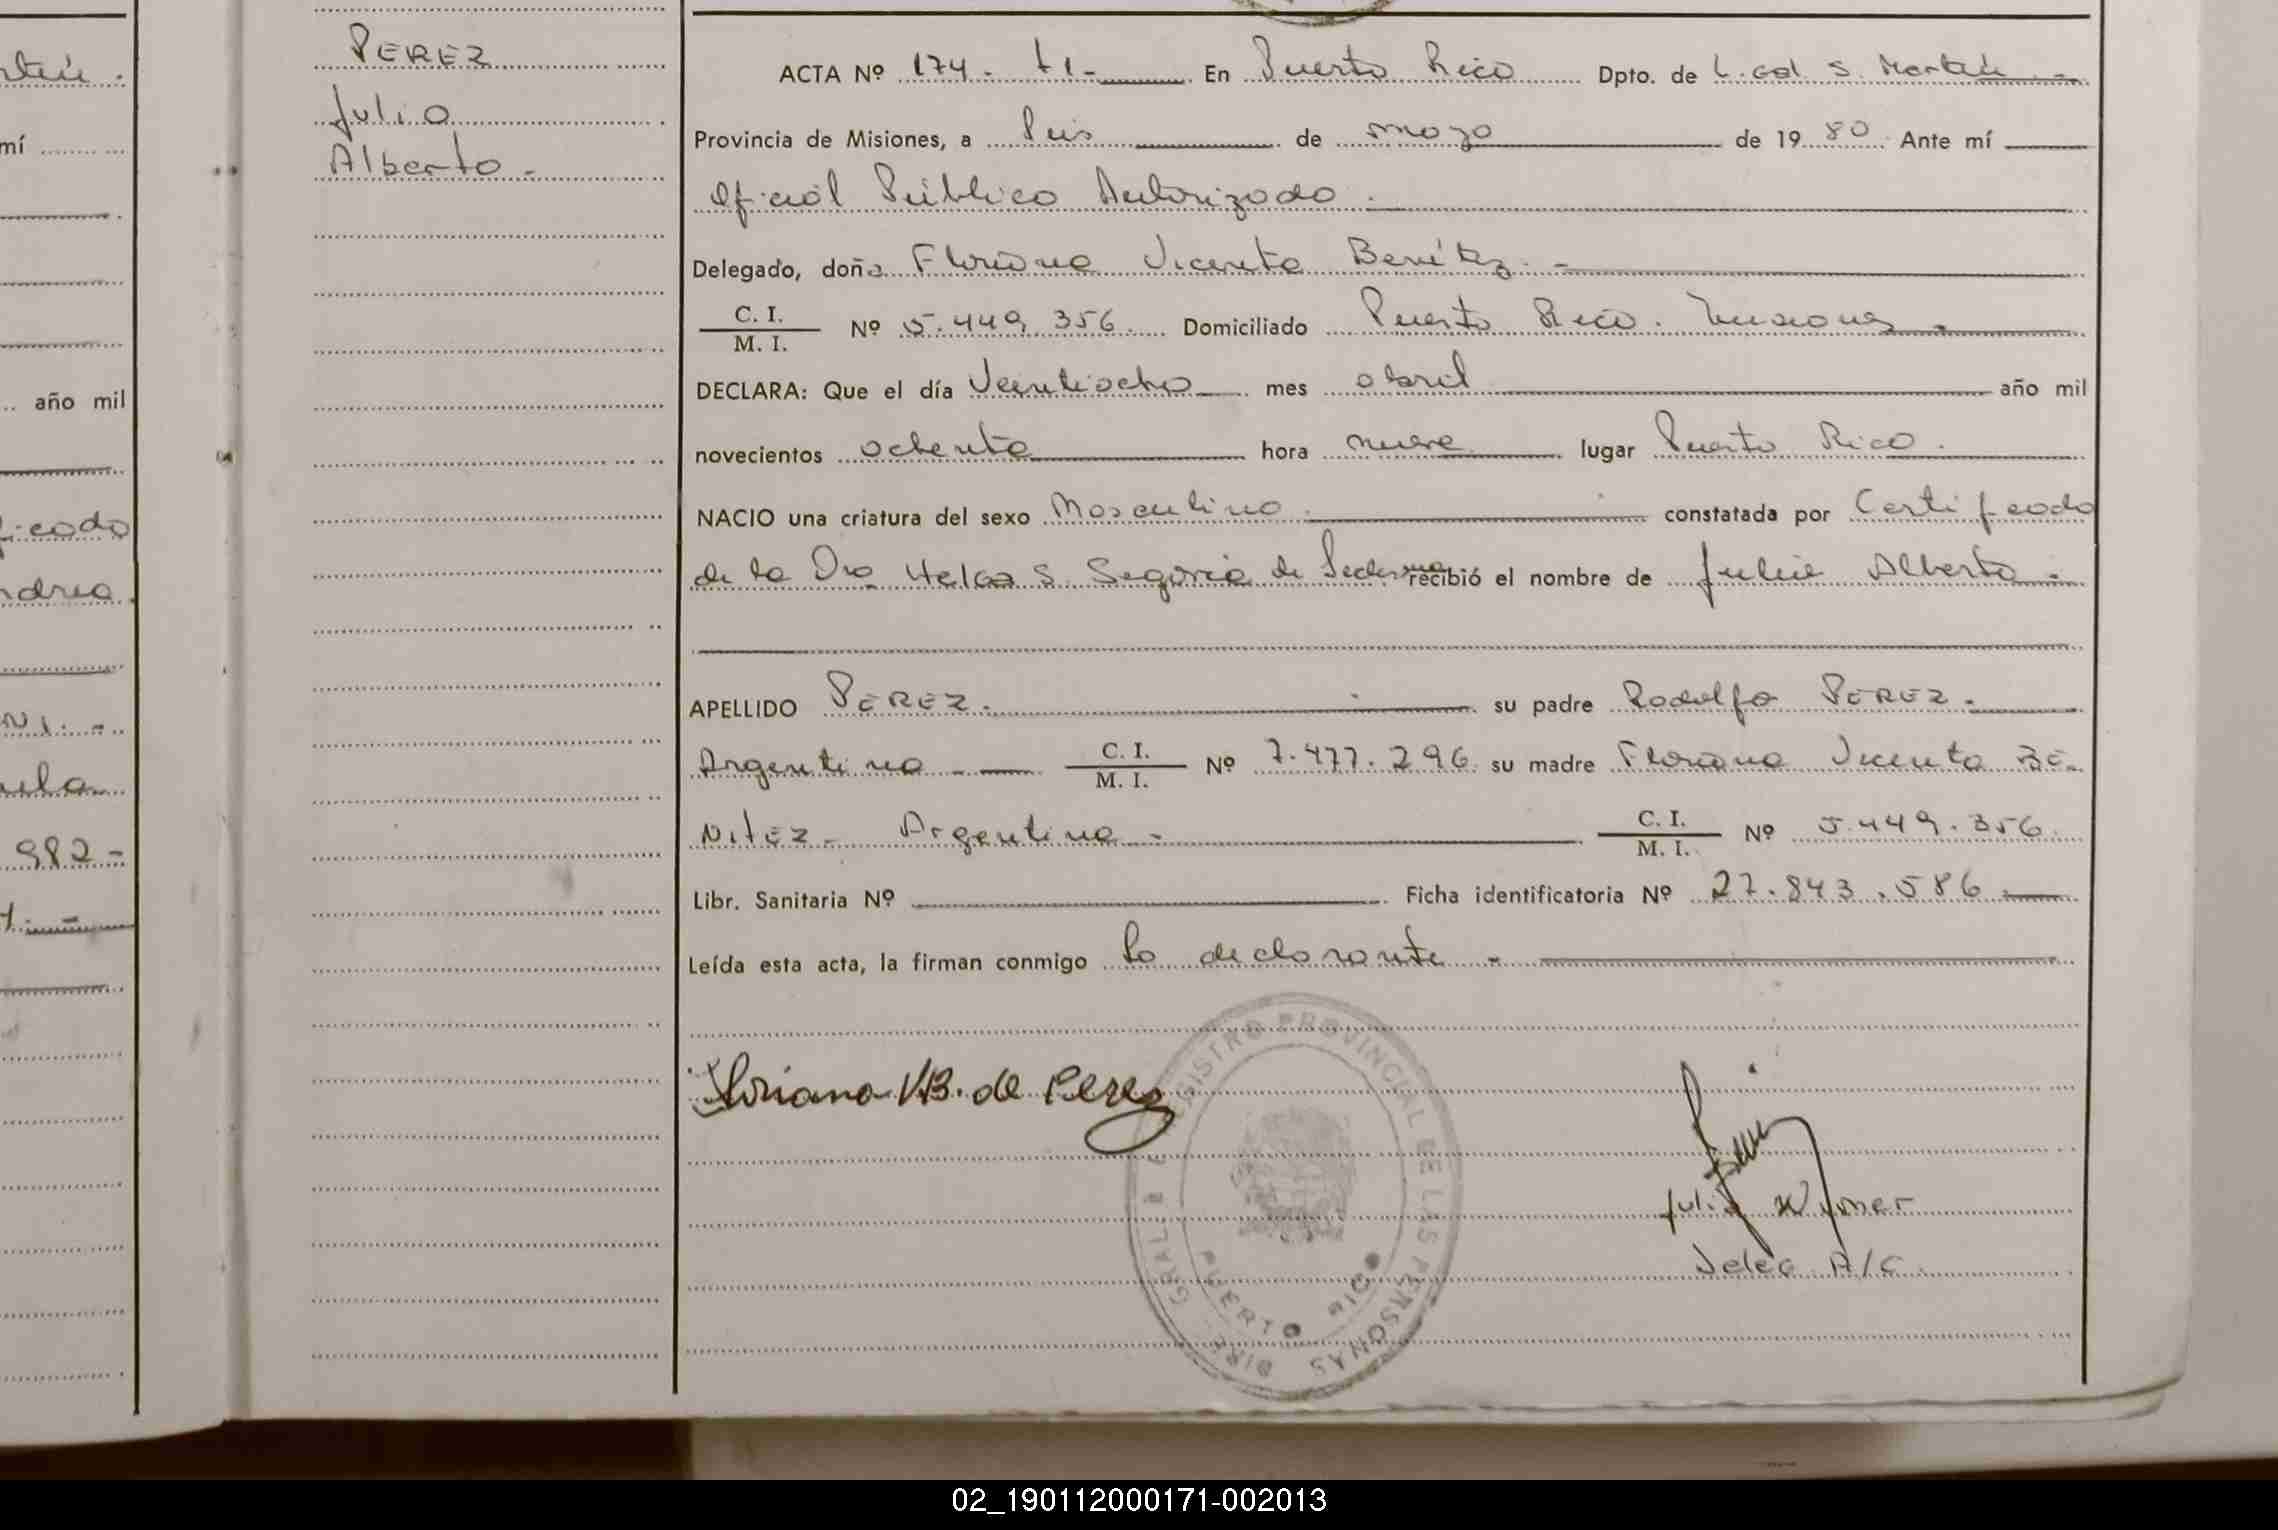 PEREZ
Julio
Alberto -
ACTA Nº 174. T1- En Puerto Rico Dpto. de L. Gal S. Martín -
Provincia de Misiones, a Seis de mayo de 1980 Ante mí
Oficial Público Autorizado.
Delegado, doña Floriana Vicenta Benítez. -
C. I.
M. I.
Nº 5.449.356. Domiciliado Puerto Rico. Misiones -
DECLARA: Que el día Veintiocho mes abril año mil
novecientos ochenta hora nueve lugar Puerto Rico.
NACIO una criatura del sexo Masculino. constatada por Certificado
de la Dra S. Segovia de recibió el nombre de Julio Alberto -
APELLIDO PEREZ. su padre Rodolfo PEREZ -
Argentino - C. I.
M. I.
Nº 7.477.296 su madre Floriana Vicenta BE-
NITEZ - Argentina - C. I.
M. I.
Nº 5.449.356.
Libr. Sanitaria Nº Ficha identificatoria Nº 27.843.586
Leída esta acta, la firman conmigo La declarante -
Floriana V B. de Perez
DIRE. GRAL. REGISTRO PROVINCIAL DE LAS PERSONAS
PUERTO RICO
Deleg A/C
año mil
mí
982-
02_190112000171-002013